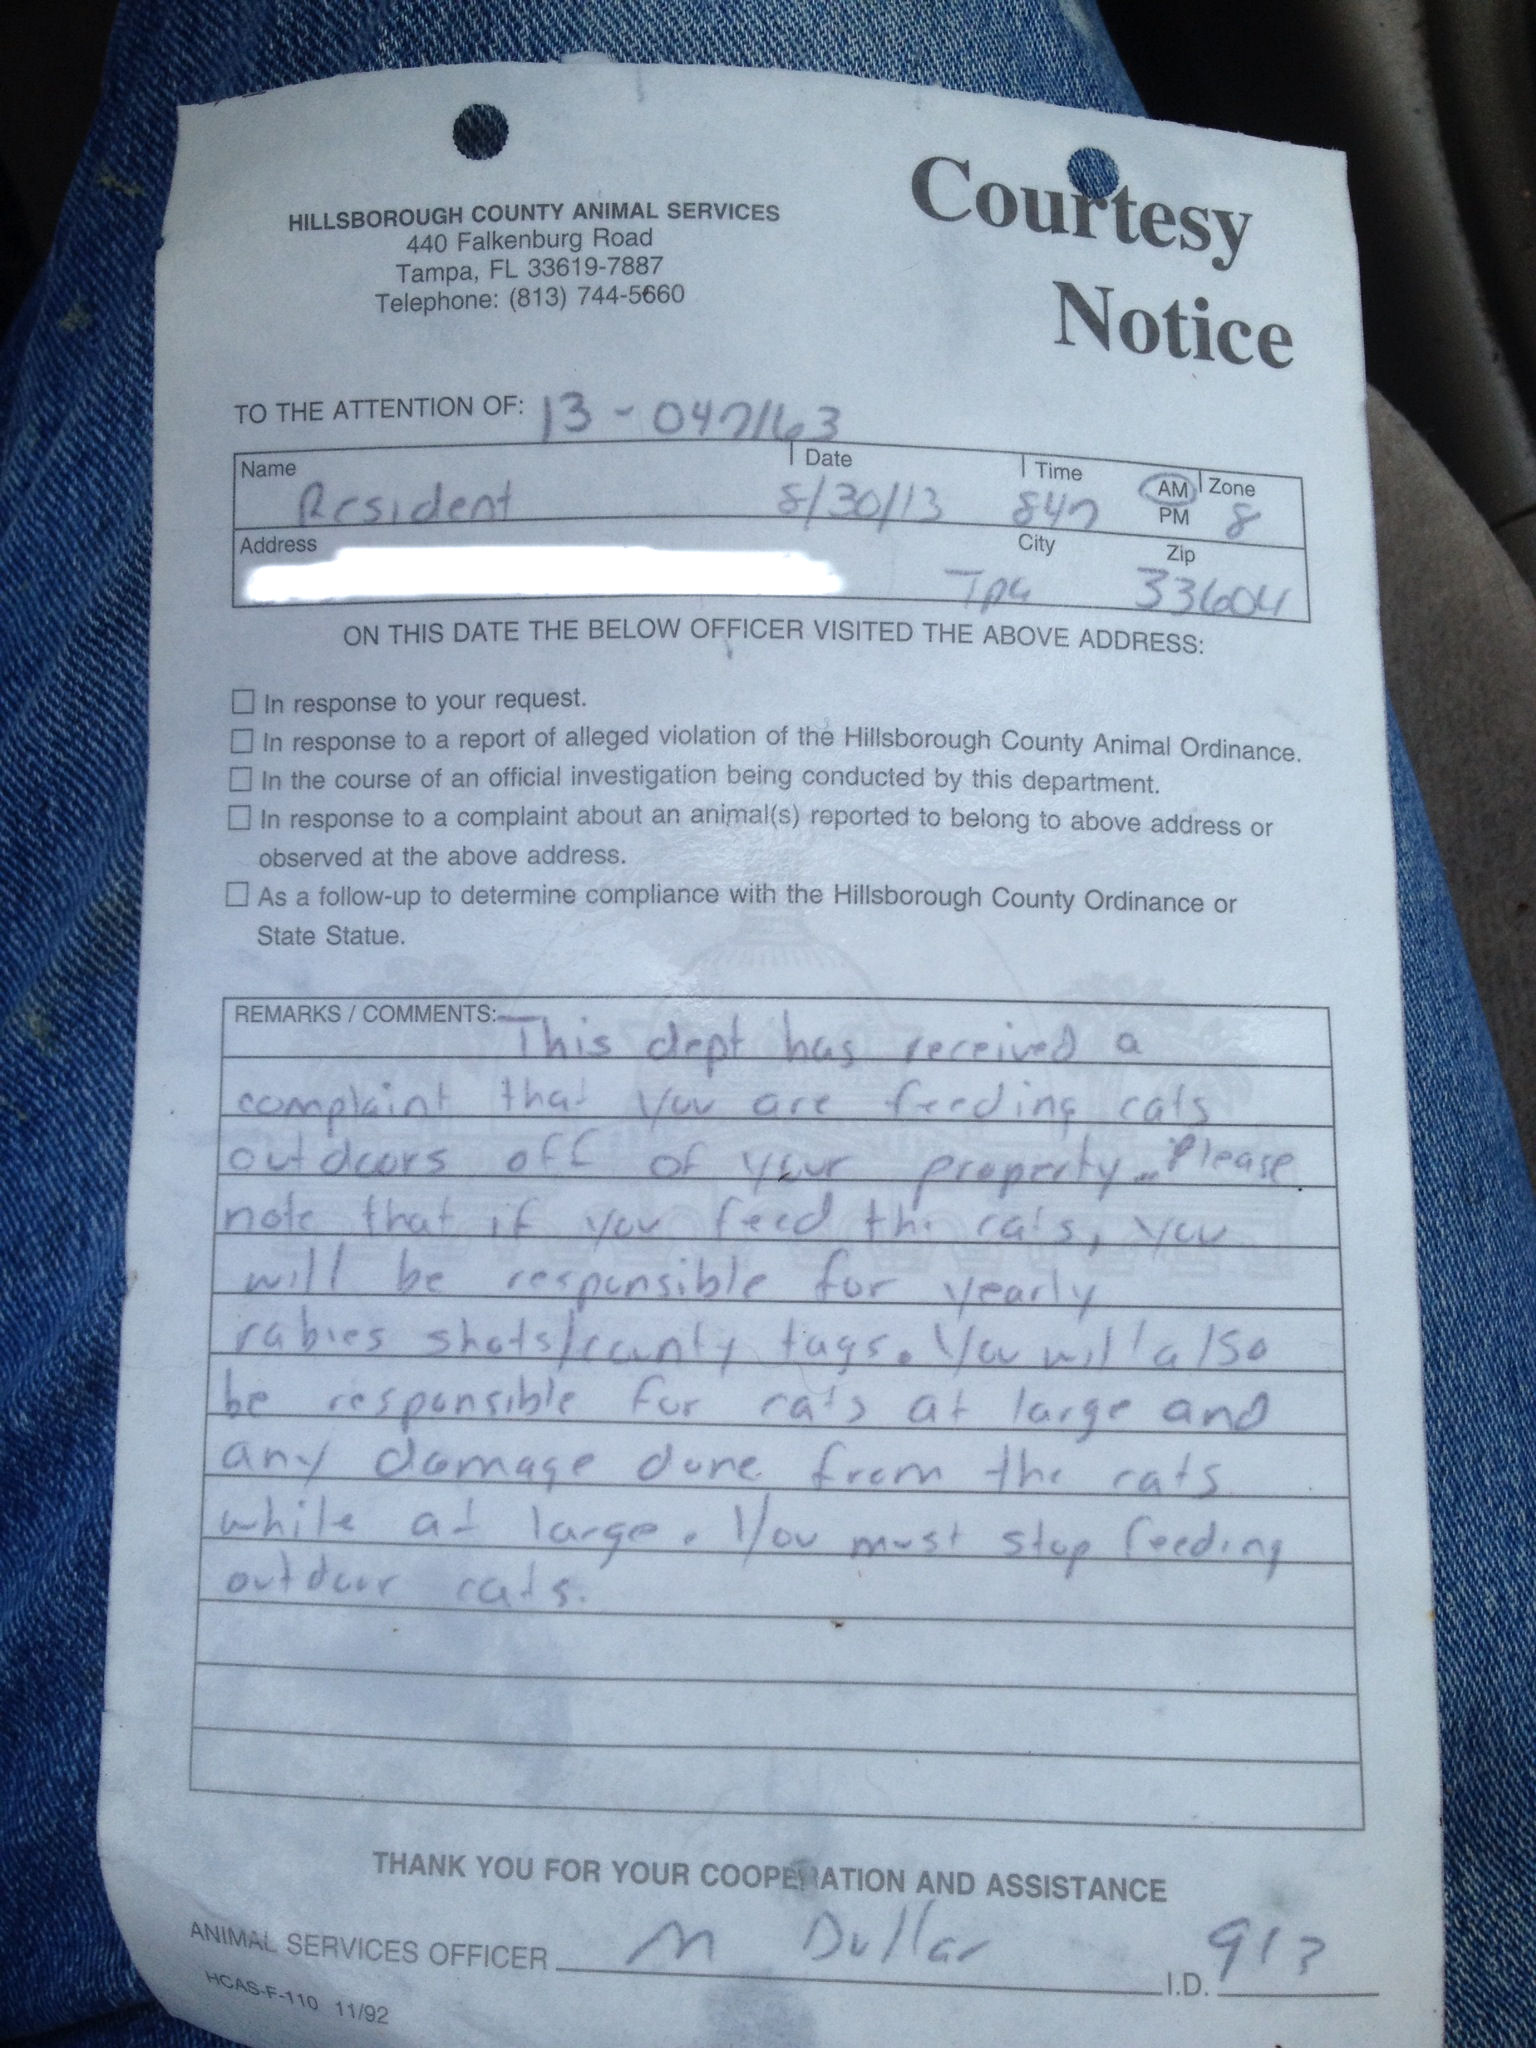 HILLSBOROUGH COUNTY ANIMAL SERVICES
440 Falkenburg Road
Tampa, FL 33619-7887
Telephone: (813) 744-5660
Courtesy
Notice
TO THE ATTENTION OF: 13-047163
Name Date Time AM PM Zone
Resident 8/30/13 847 8
Address City Zip
Tpa 33604
ON THIS DATE THE BELOW OFFICER VISITED THE ABOVE ADDRESS:
☐ In response to your request.
☐ In response to a report of alleged violation of the Hillsborough County Animal Ordinance.
☐ In the course of an official investigation being conducted by this department.
☐ In response to a complaint about an animal(s) reported to belong to above address or
observed at the above address.
☐ As a follow-up to determine compliance with the Hillsborough County Ordinance or
State Statue.
REMARKS / COMMENTS: This dept has received a
complaint that you are feeding cats
outdoors off of your property... Please
note that if you feed the cats, you
will be responsible for yearly
rabies shots/county tags. You will also
be responsible for cats at large and
any damage done from the cats
while at large. You must stop feeding
outdoor cats.
THANK YOU FOR YOUR COOPERATION AND ASSISTANCE
ANIMAL SERVICES OFFICER M Dullar I.D. 913
HCAS-F-110 11/92